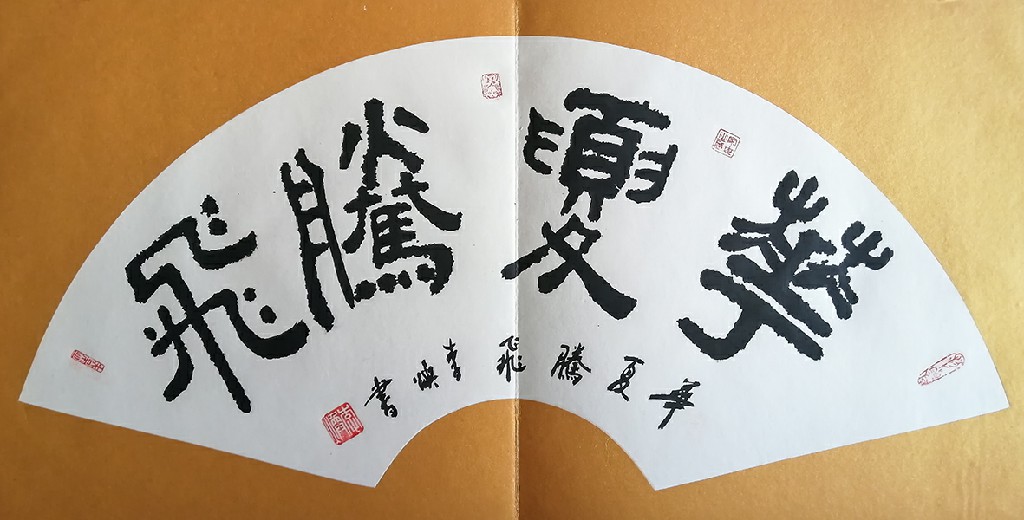 華夏騰飛
華夏騰飛李煥書